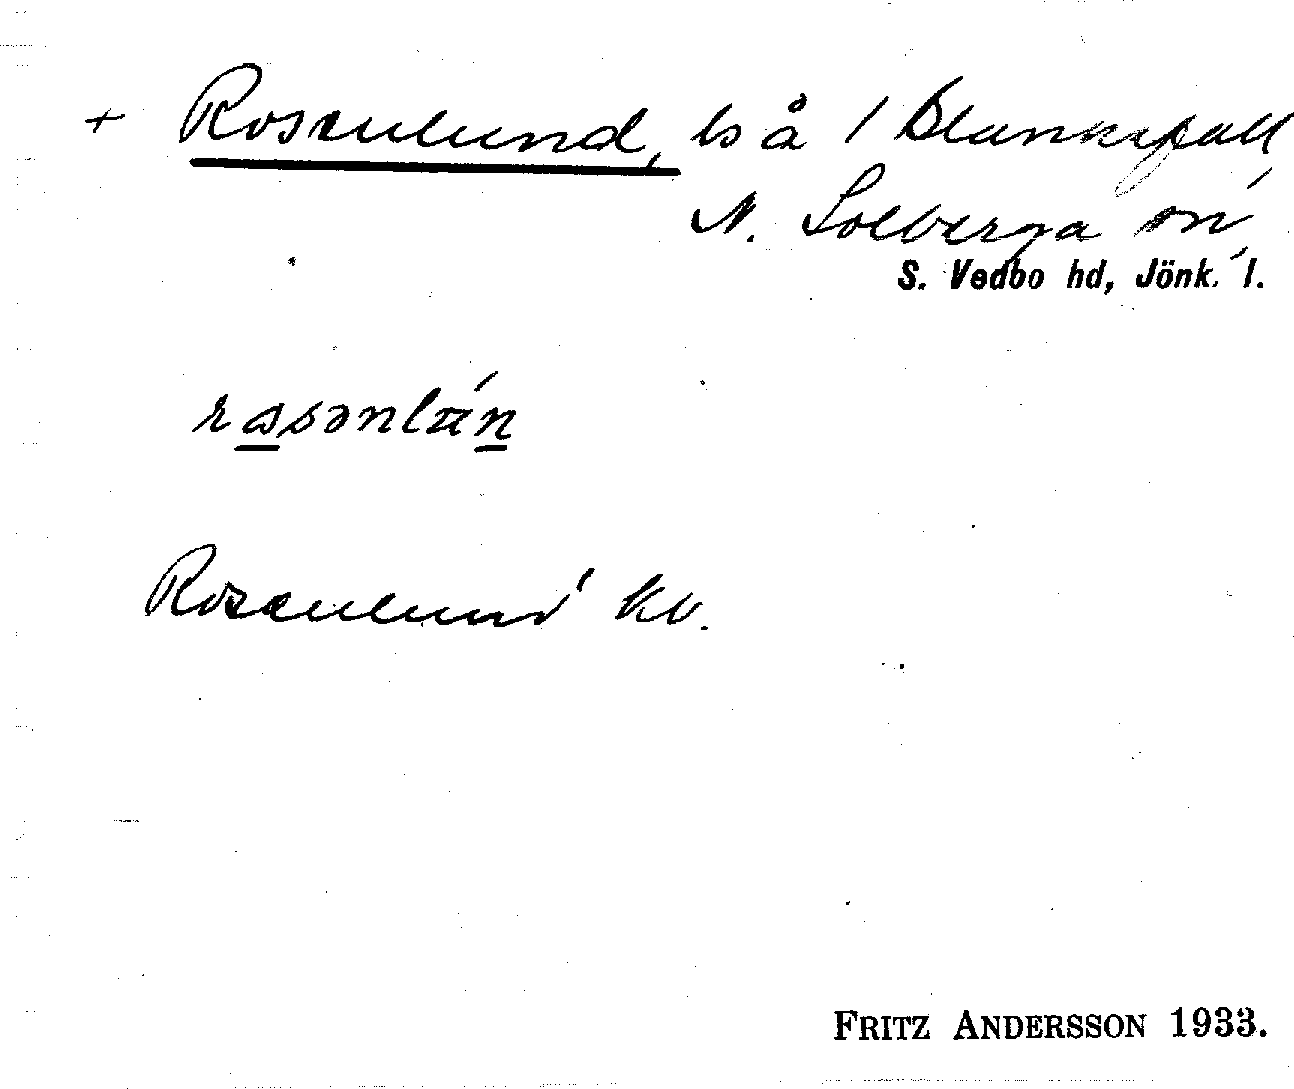 + Rosenlund, ls å 1 Blanksfall,
N. Solberga sn,
S. Vedbo hd, Jönk. l.
Rosenlund kv.
FRITZ ANDERSSON 1933.